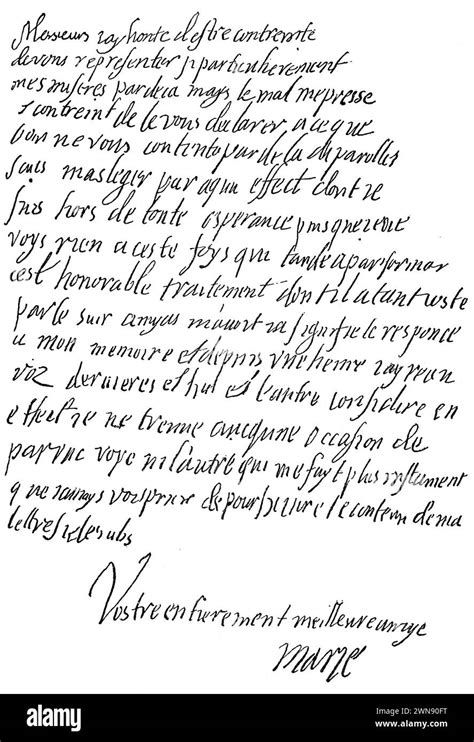 Monsieur iay honte destre contreinte
de vous representer si particulierement
mes miseres par deca mays le mal me presse
contreint de le vous declarer a ce que
bon ne vous contente par de la di parolles
sans masleger par aqun effect dont ie
suis hors de toute esperance puis que ie ne
voys rien a ceste foys qui tande a parformer
cest honorable traitement dont il a tant
par le sieur
a mon memoire et depuis une heure iay receu
voz dernieres et l'un et l'autre considere en
effect ie ne treuve aucqune occasion de
par une voye ni l'autre qui me fayt plus instament
que iamays vous prier de poursuivre le contenu de ma
lettre
Vostre entierement meilleure amye
Marie
alamy
Image ID: 2WN90FT
www.alamy.com